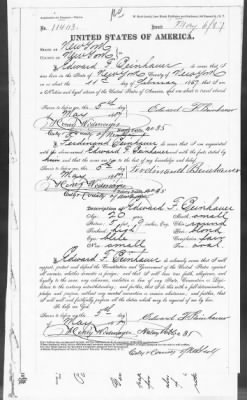 No. 11403
May 6/87
UNITED STATES OF AMERICA.
STATE OF New York
COUNTY OF New York
I, Edward F. Beinhauer do swear that I was
born in the State of New York County of New York
on the day of February 1867, that I am
a Native and loyal citizen of the United States of America, and am about to travel abroad.
Sworn to before me, this 5th day
of May 1887
Edward F. Beinhauer
I, Ferdinand Beinhauer do swear that I am acquainted
with the above-named Edward F. Beinhauer and the facts stated by
him and that the same are true to the best of my knowledge and belief.
Sworn to before me, this 5th day
of May 1887
Ferdinand Beinhauer
Description of Edward F. Beinhauer
Age: 20 years
Mouth: small
Stature: 5 feet inches, Eng.
Chin: round
Forehead: high
Hair: blond
Eyes: blue
Complexion: fair
Nose: small
Face: oval
I, Edward F. Beinhauer do solemnly swear that I will
support, protect and defend the Constitution and Government of the United States against
all enemies, whether domestic or foreign; and that I will bear true faith, allegiance and
loyalty to the same, any ordinance, resolution or law of any State, Convention or Legis-
lature to the contrary notwithstanding; and further, that I do this with a full determination,
pledge and purpose, without any mental reservation or evasion whatsoever; and further, that
I will well and faithfully perform all the duties which may be required of me by law.
So help me God.
Sworn to before me, this 5th day
of May 1887
Edward F. Beinhauer
City & County of New York